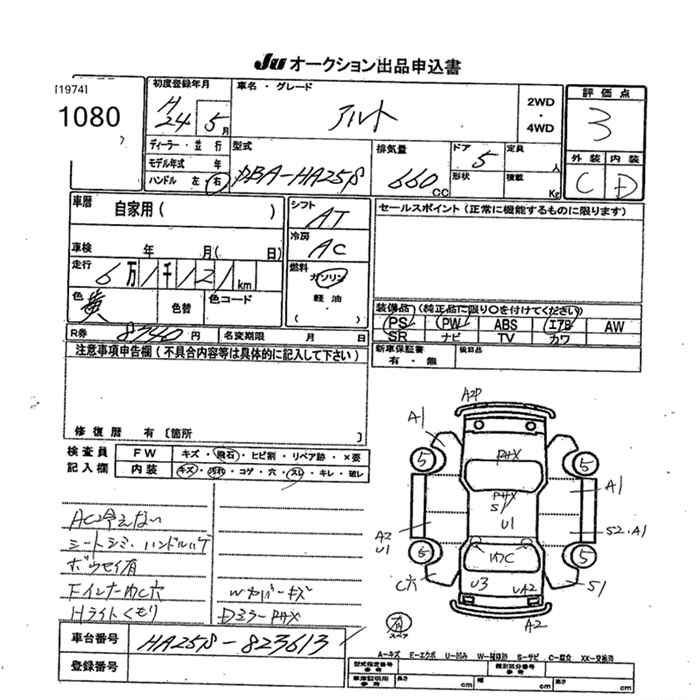 Ju オークション出品申込書
[1974]
1080
初度登録年月
H
24 5月
車名・グレード
アルト
2WD
・
4WD
評価点
3
外装 内装
C D
ディーラー・並行
モデル年式 年
ハンドル 左・右
型式
DBA-HA25S
排気量
660 CC
ドア 5
形状
定員 人
積載 Kg
車歴
自家用( )
車検 年 月( 日)
走行
6万1千121km
色 黄
色替
色コード
シフト
AT
冷房
AC
燃料
ガソリン
軽油
( )
セールスポイント(正常に機能するものに限ります)
装備品(純正品に限り○を付けてください)
PS PW ABS エアB AW
SR ナビ TV カワ
新車保証書
有・無
後日品
R券 8740円
名変期限 月 日
注意事項申告欄(不具合内容等は具体的に記入して下さい)
修復歴 有〔箇所 〕
検査員
記入欄
FW キズ・飛石・ヒビ割・リペア跡・×要
内装 キズ・汚れ・コゲ・穴・スレ・キレ・破レ
AC冷えない
シートシミ・ハンドルハゲ
ボウセイ有
FインナーWC穴
Hライトくもり
Wカバーキズ
DミラーPHX
車台番号 HA25S-823613
登録番号
A2P
A1
5
5
PHX
PHX
S1
U1
A1
A2
U1
S2・A1
5
5
WC
C穴
U3
UA2
S1
A2
有
スペア
A-キズ E-エクボ U-凹み W-補修跡 S-サビ C-腐食 XX-交換済
型式指定番号
類別区分番号
車庫証明用
参考
長さ cm
幅 cm
高さ cm